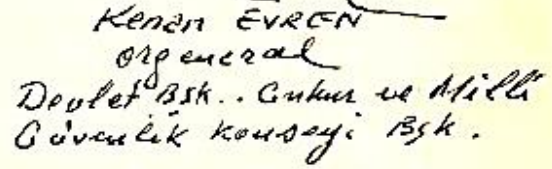 Kenan EVREN
Orgeneral
Devlet Bşk.. ve Milli
Güvenlik Konseyi Bşk.